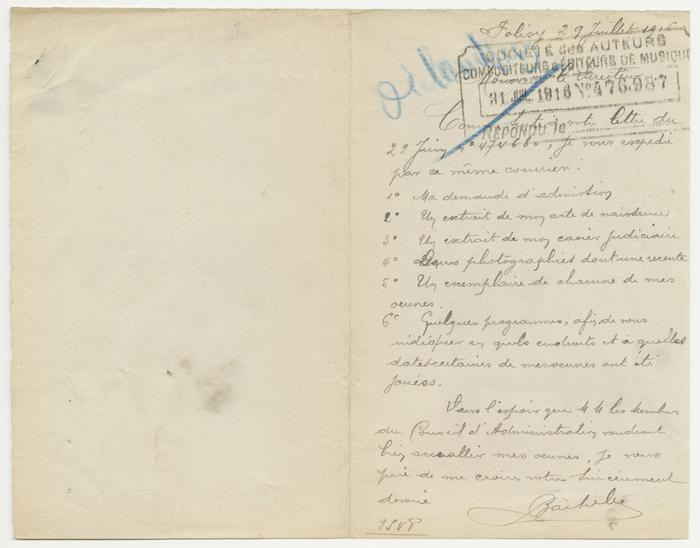 29 Juillet 1916
SOCIÉTÉ des AUTEURS
COMPOSITEURS & EDITEURS DE MUSIQUE
Monsieur le Directeur
31. JUIL. 1916 No 476.987
à votre lettre du
RÉPONDU le
22 Juin no 474680, je vous expédie
par ce même courrier:
1o Ma demande d'admission
2o Un extrait de mon acte de naissance
3o Un extrait de mon casier judiciaire
4o Deux photographies dont une recente
5o Un exemplaire de chacune de mes
oeuvres.
6o Quelques programmes; afin de vous
indiquer en quels endroits et à quelles
dates certaines de mes oeuvres ont été
jouées.
Dans l'espoir que MM les Membres
du Conseil d'Administration voudront
bien accueillir mes oeuvres, Je vous
prie de me croire votre Sincèrement
devoué